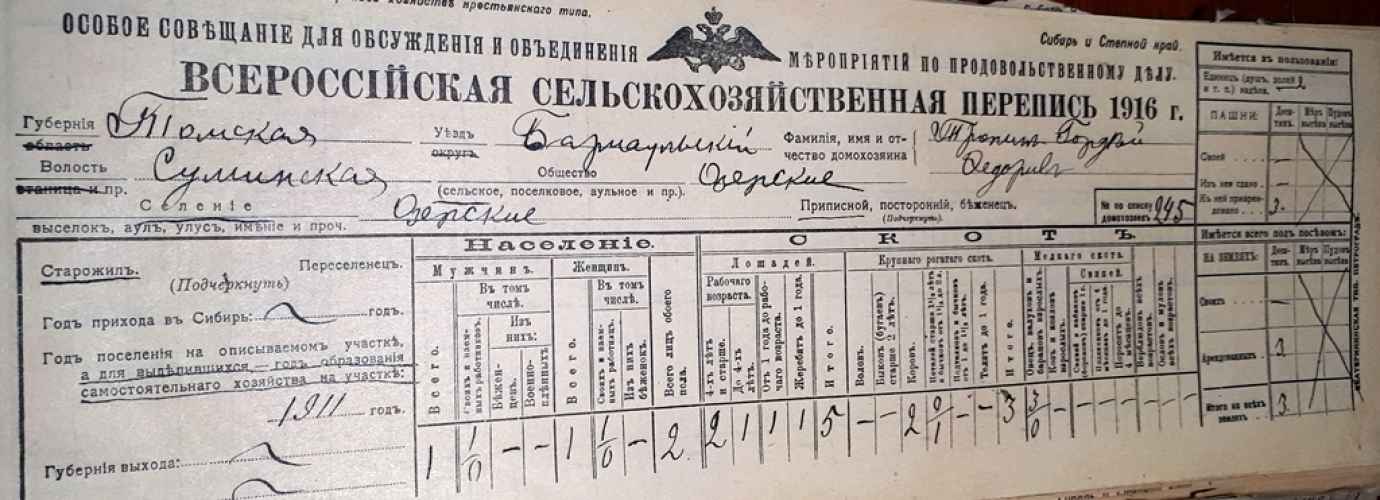 хозяйствъ крестьянскаго типа.
ОСОБОЕ СОВѢЩАНІЕ ДЛЯ ОБСУЖДЕНІЯ И ОБЪЕДИНЕНІЯ МѢРОПРІЯТІЙ ПО ПРОДОВОЛЬСТВЕННОМУ ДѢЛУ.
Сибирь и Степной край.
ВСЕРОССІЙСКАЯ СЕЛЬСКОХОЗЯЙСТВЕННАЯ ПЕРЕПИСЬ 1916 г.
Губернія Томская Уѣздъ Барнаульскій Фамилія, имя и от-
область округъ чество домохозяина
Волость Суминская Общество Озерские
станица и пр. (сельское, поселковое, аульное и пр.).
Селеніе Озерские Приписной, посторонній, бѣженецъ.
(Подчеркнуть).
№ по списку домохозяевъ 245
выселокъ, аулъ, улусъ, имѣніе и проч.
Старожилъ. Переселенецъ.
(Подчеркнуть)
Годъ прихода въ Сибирь: годъ.
Годъ поселенія на описываемомъ участкѣ,
а для выдѣлившихся — годъ образованія
самостоятельнаго хозяйства на участкѣ:
1911 годъ.
Губернія выхода:
Населеніе.
Мужчинъ. Женщинъ.
Всего.
Въ томъ числѣ.
Своихъ и наем-
ныхъ работниковъ.
Изъ нихъ:
Бѣжен-
цевъ.
Военно-
плѣнныхъ
Всего.
Въ томъ числѣ.
Своихъ и наем-
ныхъ работницъ.
Изъ нихъ
бѣженокъ.
Всего лицъ обоего
пола.
СКОТЪ.
Лошадей.
Рабочаго
возраста.
4-хъ лѣтъ
и старше.
До 4-хъ
лѣтъ.
Отъ 1 года до рабо-
чаго возраста.
Жеребятъ до 1 года.
Итого.
Крупнаго рогатаго скота.
Воловъ.
Быковъ (бугаевъ)
старше 2 лѣтъ.
Коровъ.
Телятъ до 1 года.
Итого.
Мелкаго скота.
Овецъ, валуховъ и
барановъ взрослыхъ.
Свиней.
1 1/0 – – 1 1/0 – 2 2 1 1 1 5 – – 2 0/1 – – 3 3/0 – – – – –
Имѣется въ пользованіи:
Единицъ (душ., долей
и т. п.) надѣла. 2
ПАШНИ: Деся-
тинъ.
Своей –
Изъ нея сдано –
Къ ней приарен-
довано 3
Имѣется всего подъ посѣвомъ:
НА ЗЕМЛЯХЪ: Деся-
тинъ.
Своихъ –
Арендованныхъ 3
Итого на всѣхъ
земляхъ 3